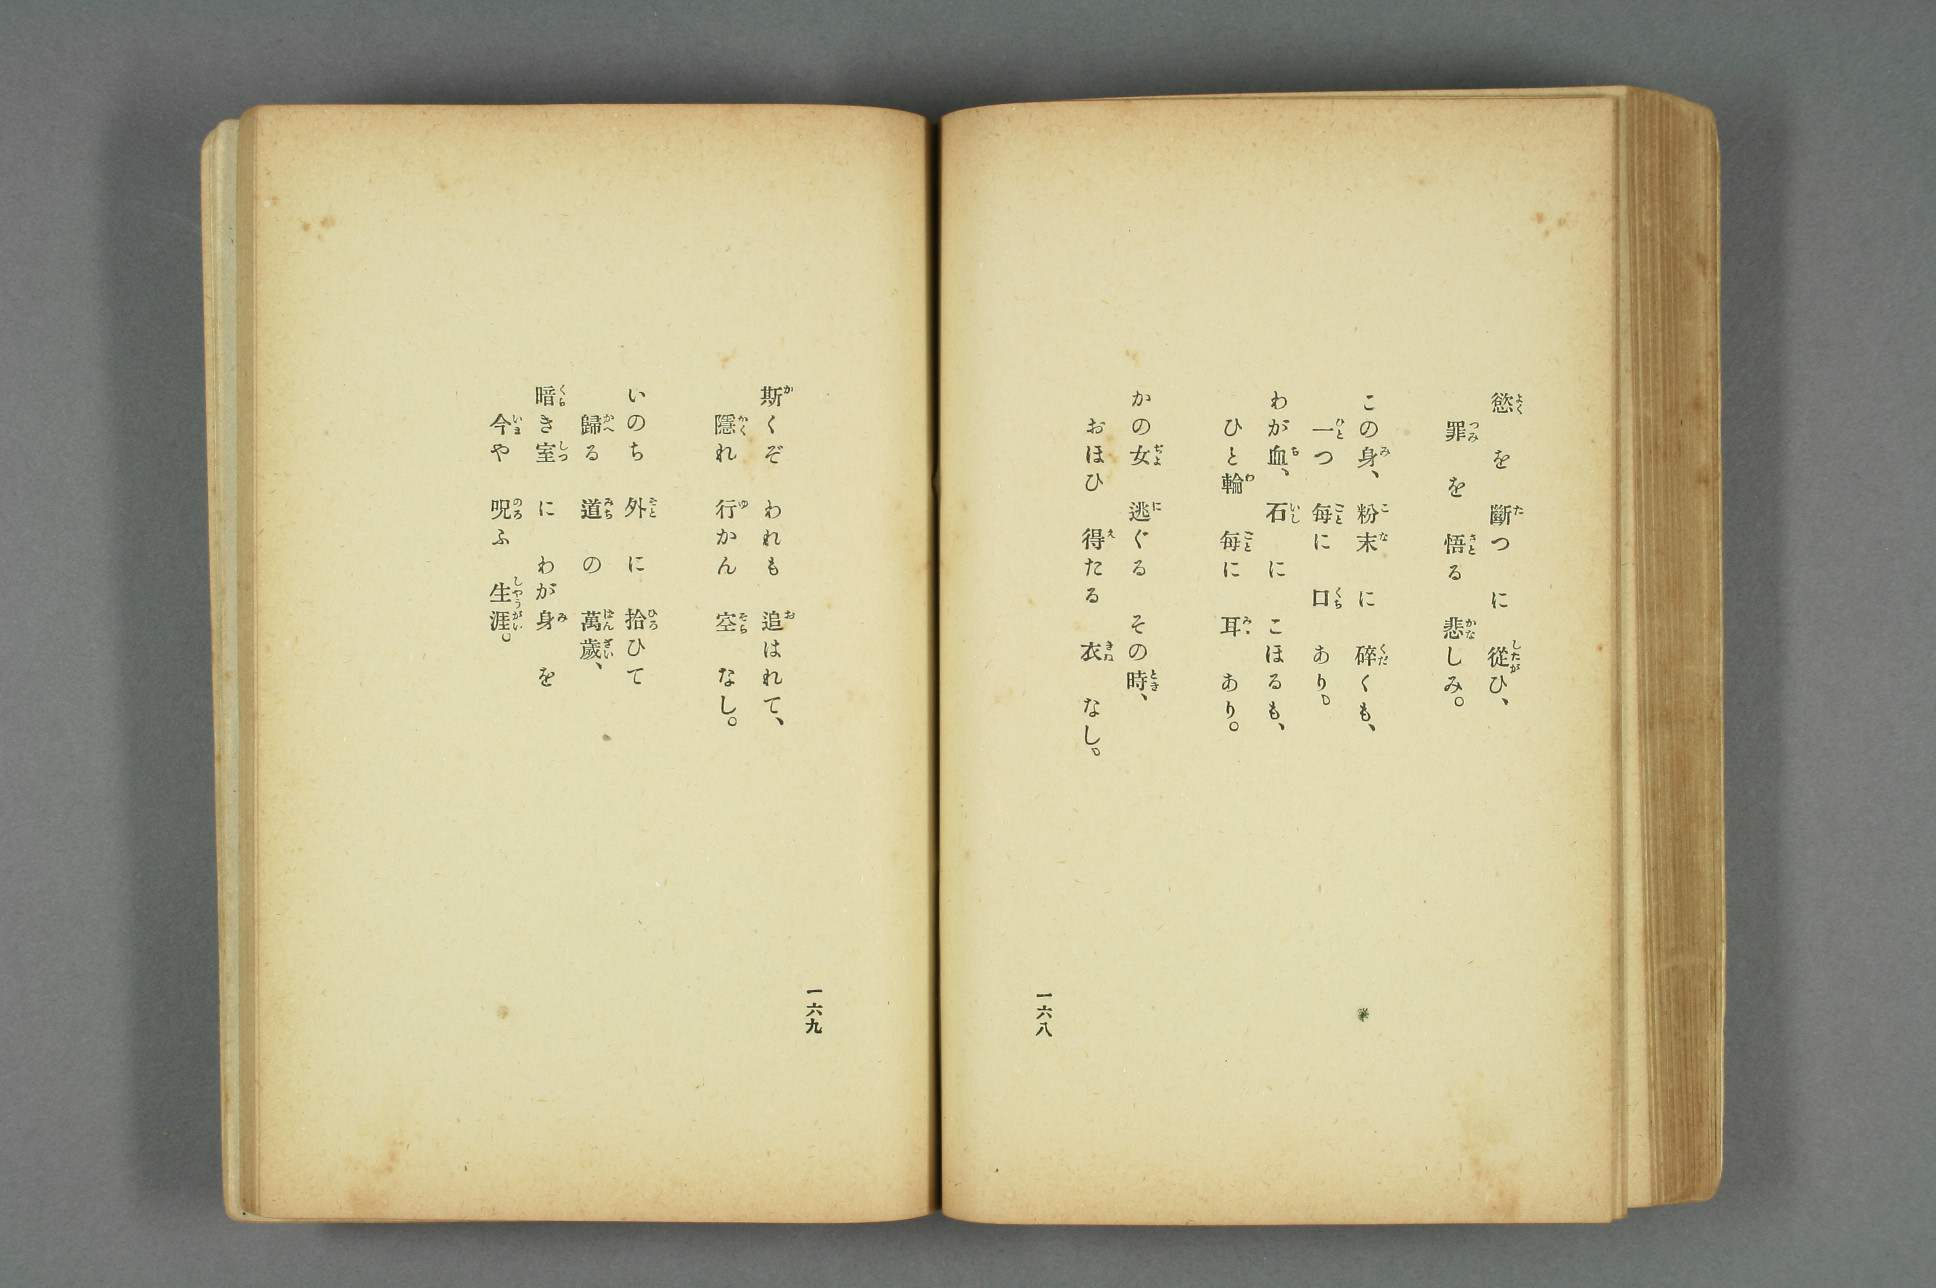 慾を斷つに從ひ、
罪を悟る悲しみ。
この身、粉末に碎くも、
一つ每に口あり。
わが血、石にこほるも、
ひと輪每に耳あり。
かの女逃ぐるその時、
おほひ得たる衣なし。
一六八
斯くぞわれも追はれて、
隱れ行かん空なし。
いのち外に拾ひて
歸る道の萬歲、
暗き室にわが身を
今や呪ふ生涯。
一六九